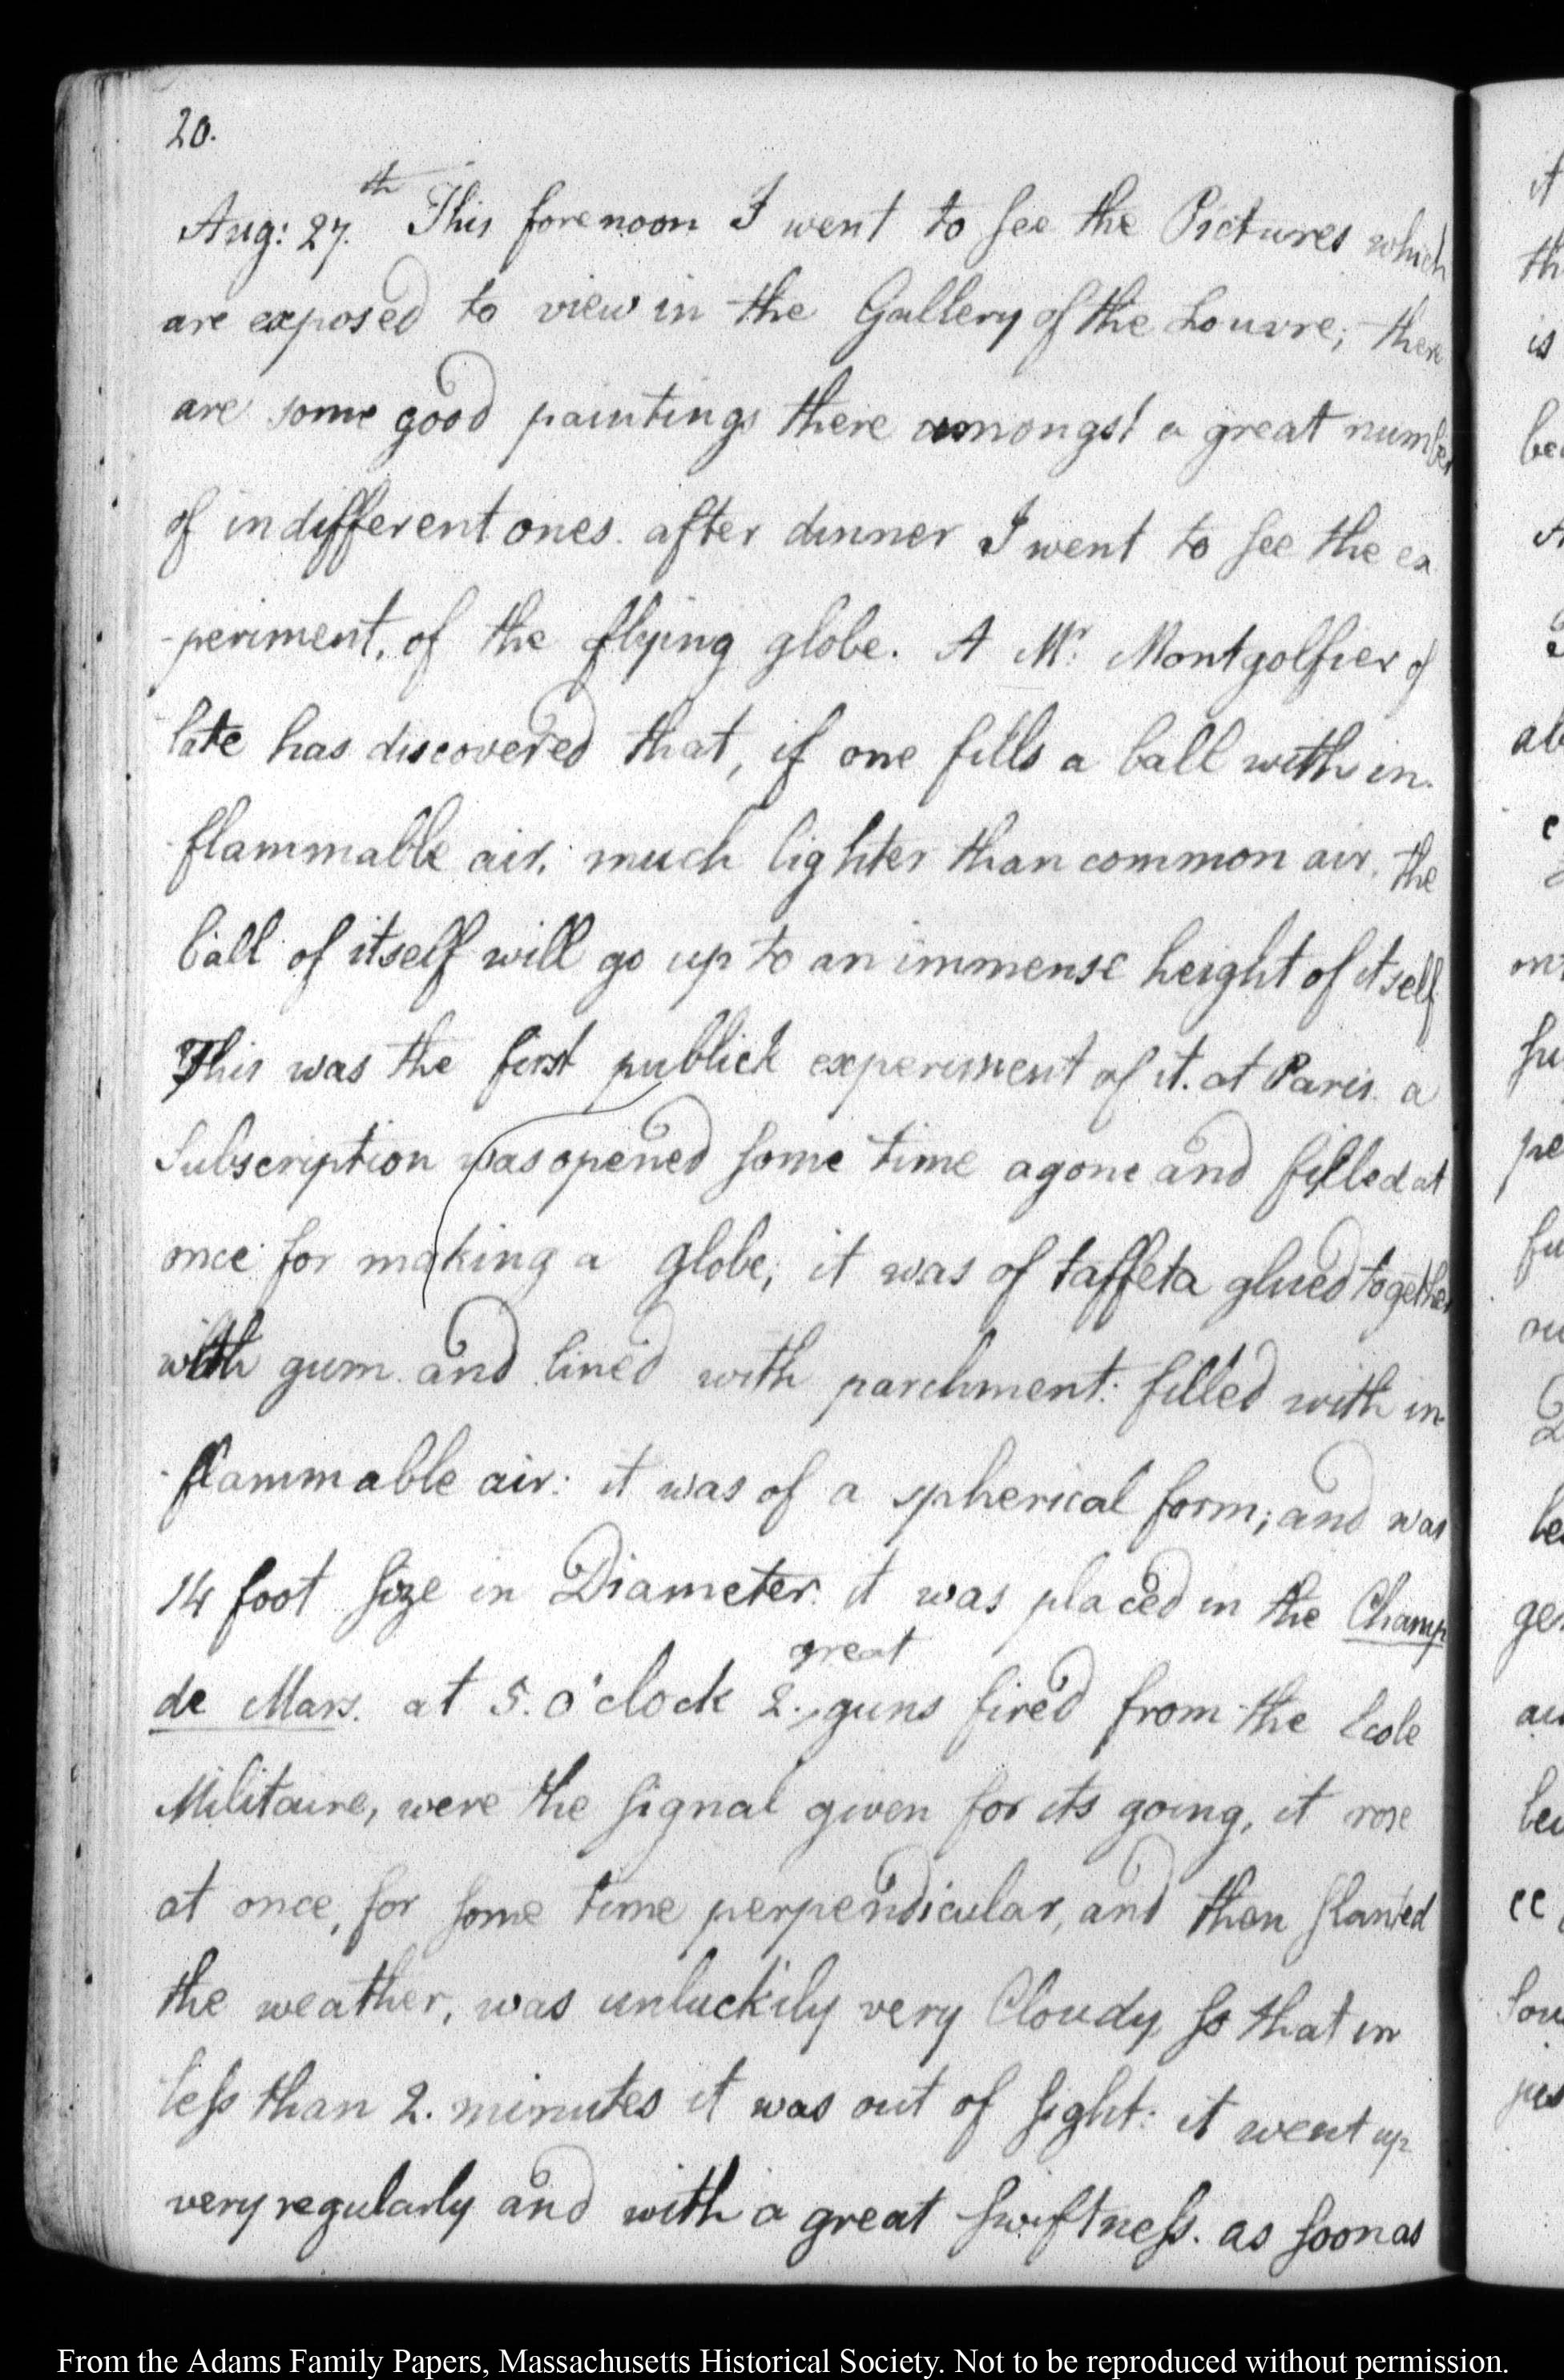 20.
Aug: 27.th This forenoon I went to see the Pictures which
are exposed to view in the Gallery of the Louvre; there
are some good paintings there amongst a great number
of indifferent ones. after dinner I went to see the ex
-periment, of the flying globe. A Mr: Montgolfier of
late has discovered that, if one fills a ball with in-
-flammable air, much lighter than common air, the
ball of itself will go up to an immense height of itself
This was the first publick experiment of it. at Paris. a
Subscription was opened some time agone and filled at
once for making a globe; it was of taffeta glued together
with gum. and lined with parchment: filled with in-
-flammable air: it was of a spherical form; and was
14 foot size in Diameter. it was placed in the Champ
de Mars. at 5. o'clock 2. great guns fired from the Ecole
Militaire, were the signal given for its going, it rose
at once, for some time perpendicular, and then slanted
the weather, was unluckily very Cloudy, so that in
less than 2. minutes it was out of sight: it went up
very regularly and with a great swiftness. as soon as
it
th
is
al
fu
pe
fu
ou
le
ge
au
cc
jus
From the Adams Family Papers, Massachusetts Historical Society. Not to be reproduced without permission.